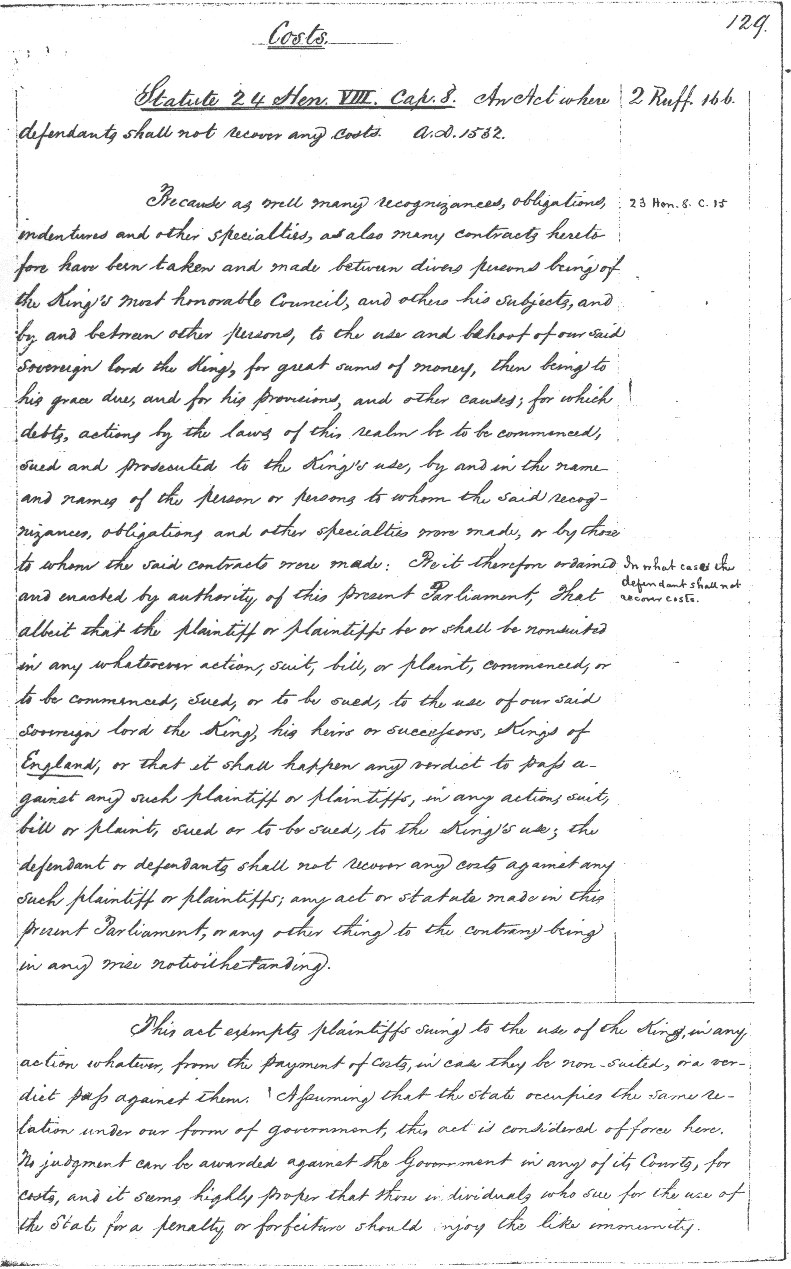 129.
Costs.
Statute 24 Hen. VIII. Cap. 8. An Act where
2 Ruff. 166.
defendants shall not recover any costs. A.D. 1532.
Because as well many recognizances, obligations,
23 Hen. 8. C. 15
indentures and other specialties, as also many contracts hereto
fore have been taken and made between divers persons being of
the King's most honorable Council, and others his subjects, and
by and between other persons, to the use and behoof of our said
sovereign lord the King, for great sums of money, then being to
his grace due, and for his provisions, and other causes; for which
debts, actions by the laws of this realm be to be commenced,
sued and prosecuted to the King's use, by and in the name
and names of the person or persons to whom the said recog-
nizances, obligations and other specialties were made, or by those
to whom the said contracts were made: Be it therefore ordained
In what cases the
defendant shall not
recover costs.
and enacted by authority of this present Parliament, That
albeit that the plaintiff or plaintiffs be or shall be nonsuited
in any whatsoever action, suit, bill, or plaint, commenced, or
to be commenced, sued, or to be sued, to the use of our said
sovereign lord the King, his heirs or successors, Kings of
England, or that it shall happen any verdict to pass a-
gainst any such plaintiff or plaintiffs, in any action, suit,
bill or plaint, sued or to be sued, to the King's use; the
defendant or defendants shall not recover any costs against any
such plaintiff or plaintiffs; any act or statute made in this
present Parliament, or any other thing to the contrary being
in any wise notwithstanding.
This act exempts plaintiffs suing to the use of the King, in any
action whatever, from the payment of costs, in case they be non-suited, or a ver-
dict pass against them. Assuming that the state occupies the same re-
lation under our form of government, this act is considered of force here.
No judgment can be awarded against the Government in any of its Courts, for
costs, and it seems highly proper that those individuals who sue for the use of
the State for a penalty or forfeiture should enjoy the like immunity.